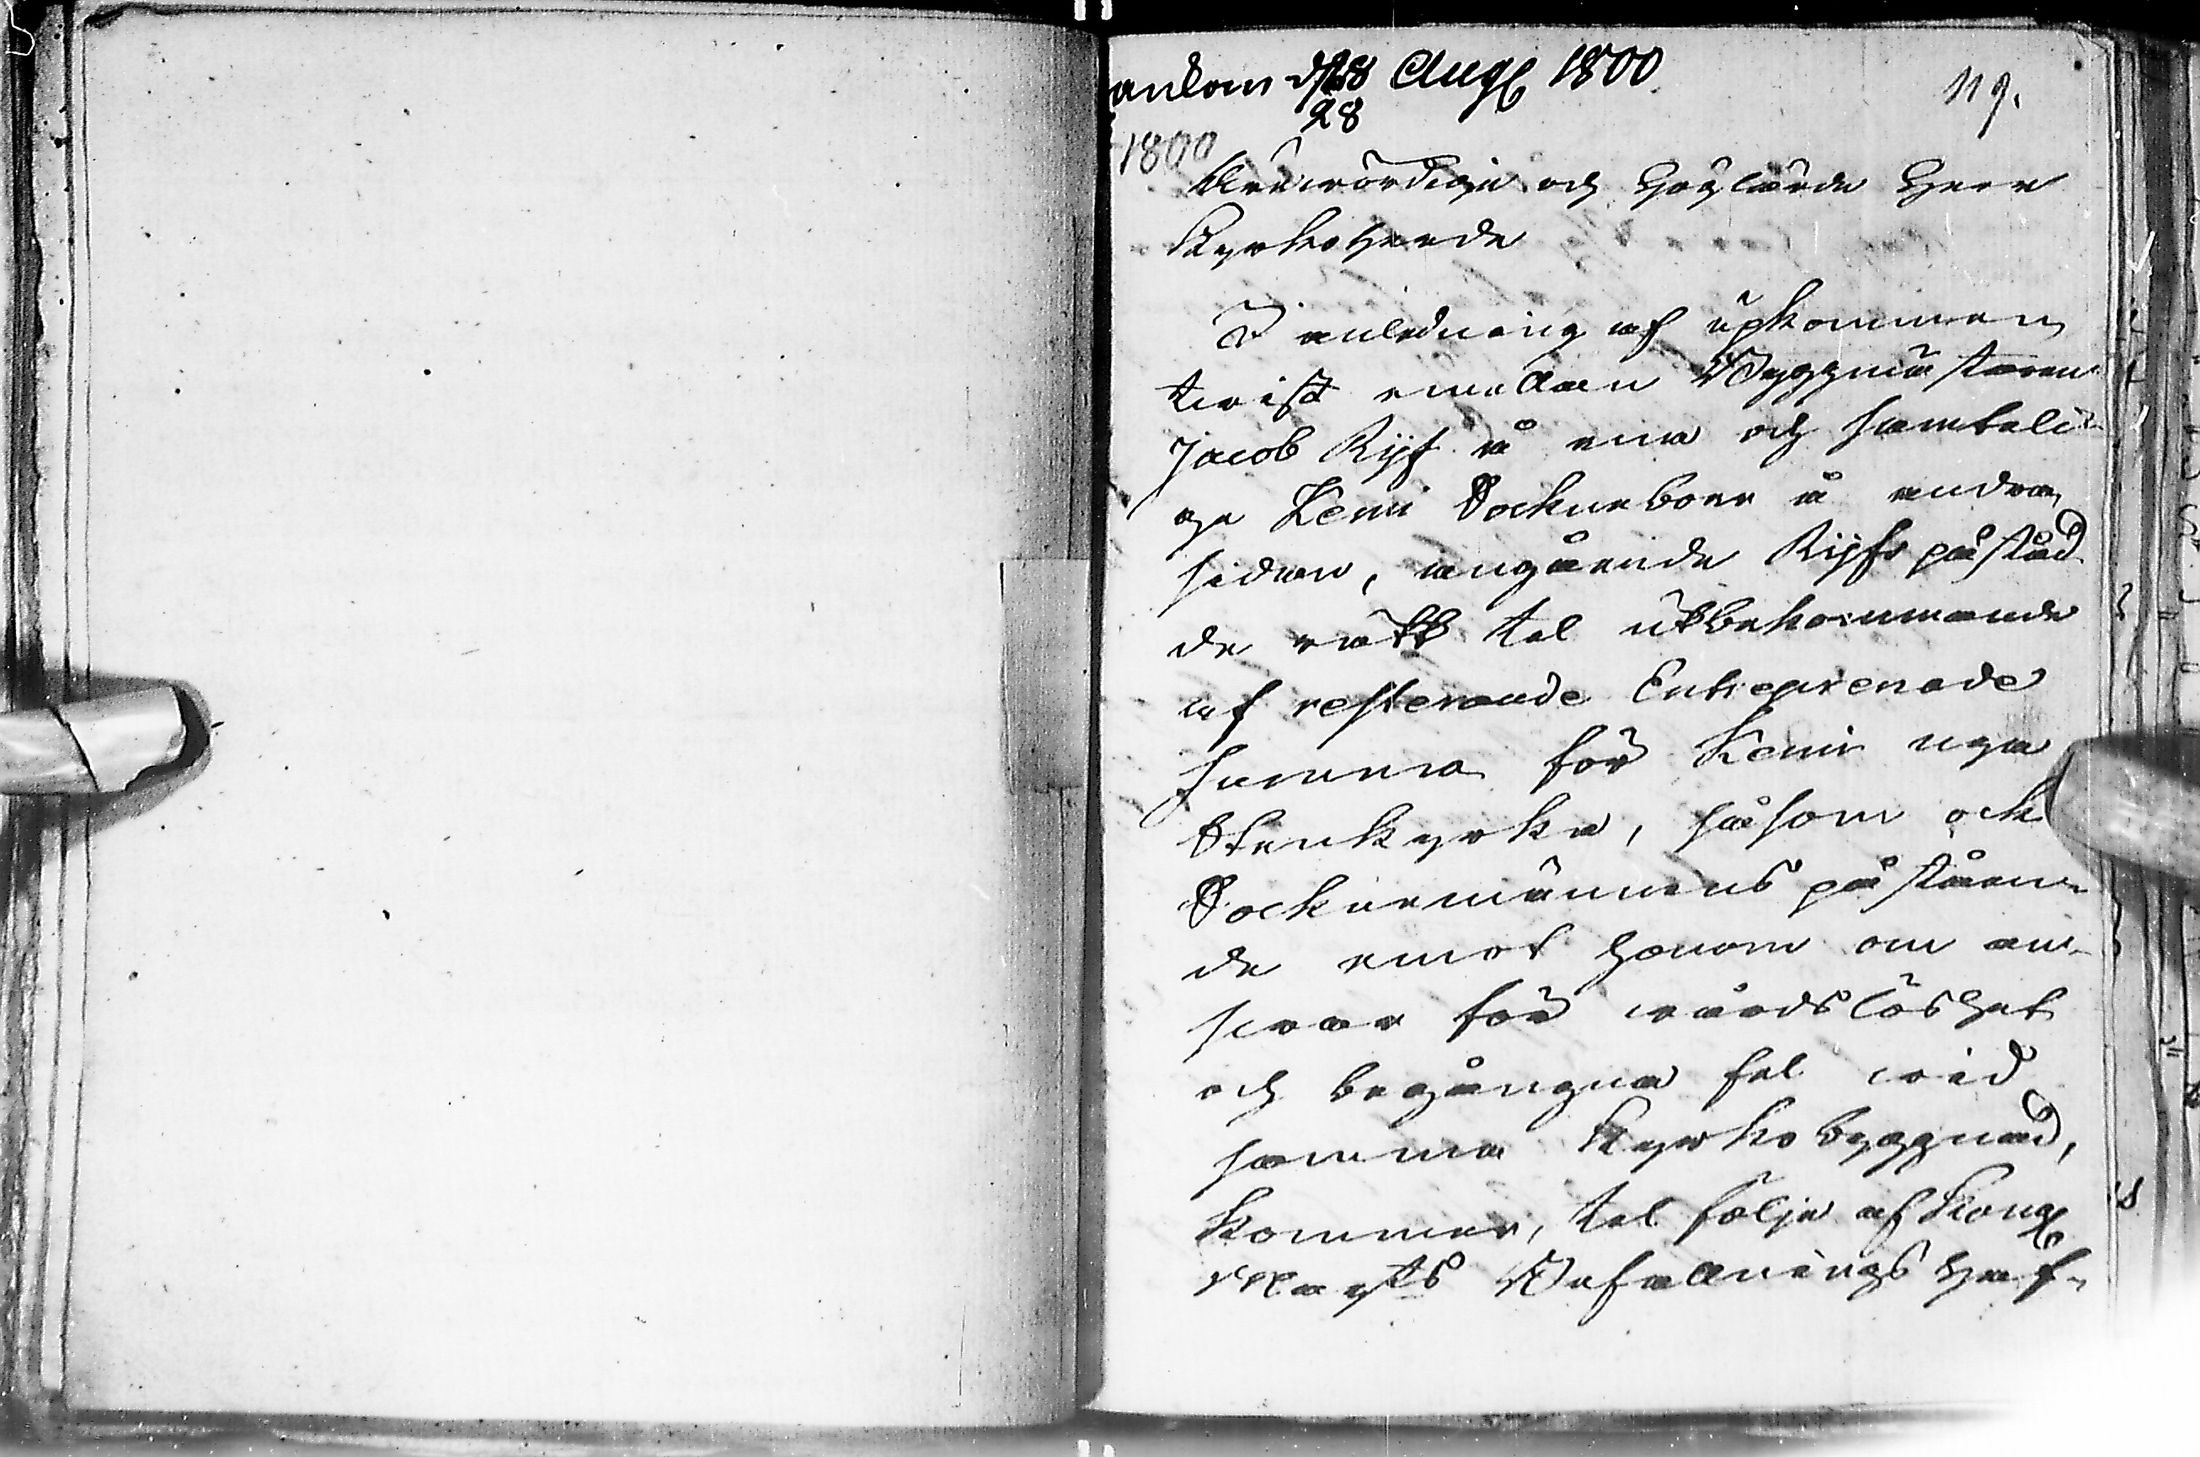 ankom d. 28 Aug 1800
28
119.
1800
Ärewördige och Höglärde Herr
Kyrkoherde
I anledning af upkommen
twist emellan Byggmästaren
Jacob Rijf å ena och samteli-
ge Kemi Sockneboer å andra
sidan, angående Rijfs påståd-
de rätt til utbekommande
af resterande Entreprenade
summa för Kemi nya
Stenkyrka, såsom ock
Sockнemännens påståen-
de emot honom om an-
swar för wårdslöshet
och begångna fel wid
samma Kyrkobyggnad,
kommer, til följe af Kongl
Maj:ts Befallnings Haf-